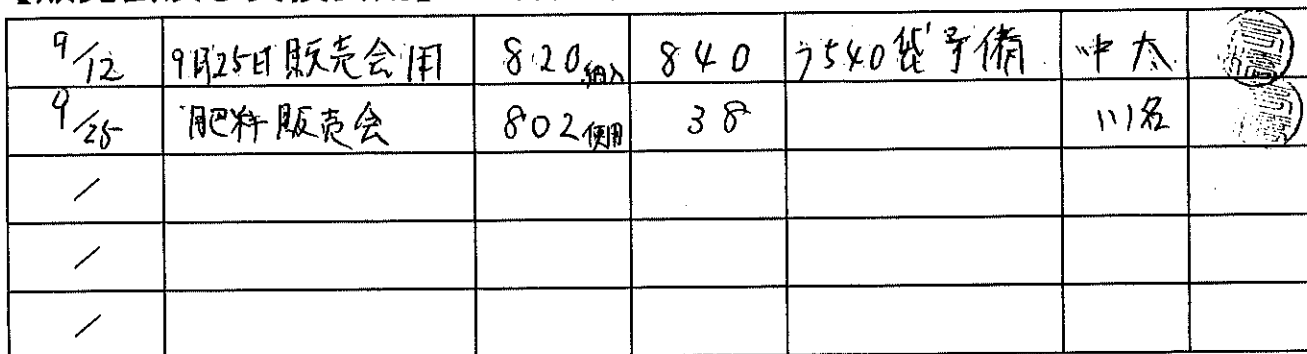 9/12 9月25日販売会用 820納入 840 うち40袋予備 中太
9/25 肥料販売会 802使用 38 川名
/
/
/